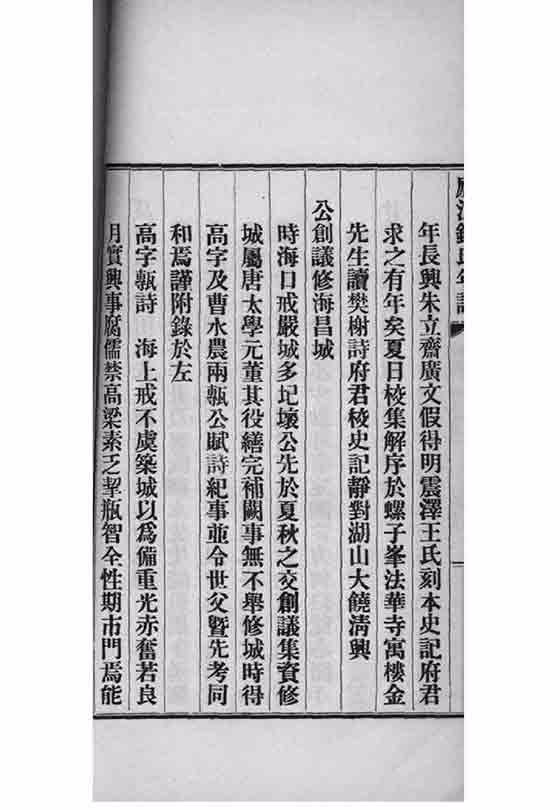 年長興朱立齋廣文假得明震澤王氏刻本史記府君
求之有年矣夏日校集解序於螺子峯法華寺寓樓金
先生讀樊榭詩府君校史記靜對湖山大饒清興
公創議修海昌城
時海口戒嚴城多圮壞公先於夏秋之交創議集資修
城屬唐太學元董其役繕完補闕事無不舉修城時得
高字及曹水農兩甎公賦詩紀事並令世父暨先考同
和焉謹附錄於左
高字甎詩　海上戒不虞築城以爲備重光赤奮若良
月實興事腐儒禁高梁素乏挈瓶智全性期市門焉能